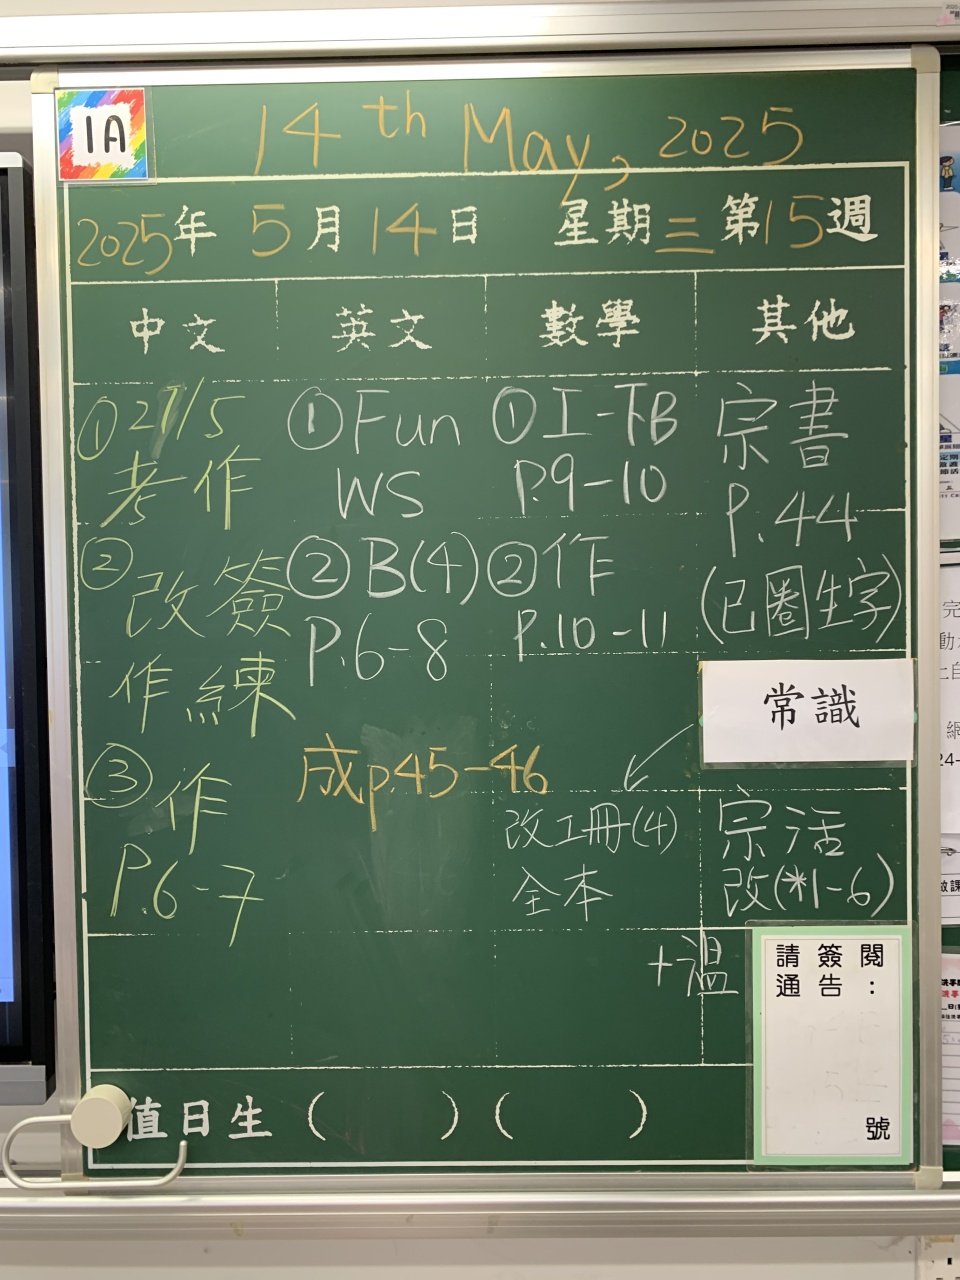 1A
14th May, 2025
2025年 5月 14日 星期三 第15週
中文 英文 數學 其他
①27/5
考作
②
改簽
作練
③作
P.6-7
①Fun
WS
②B(4)
P.6-8
成p.45-46
①工-下B
P.9-10
②作
P.10-11
宗書
P.44
(已圈生字)
常識
改工冊(4)
全本
宗活
改(*1-6)
+溫
請簽閱
通告：
號
值日生( )( )